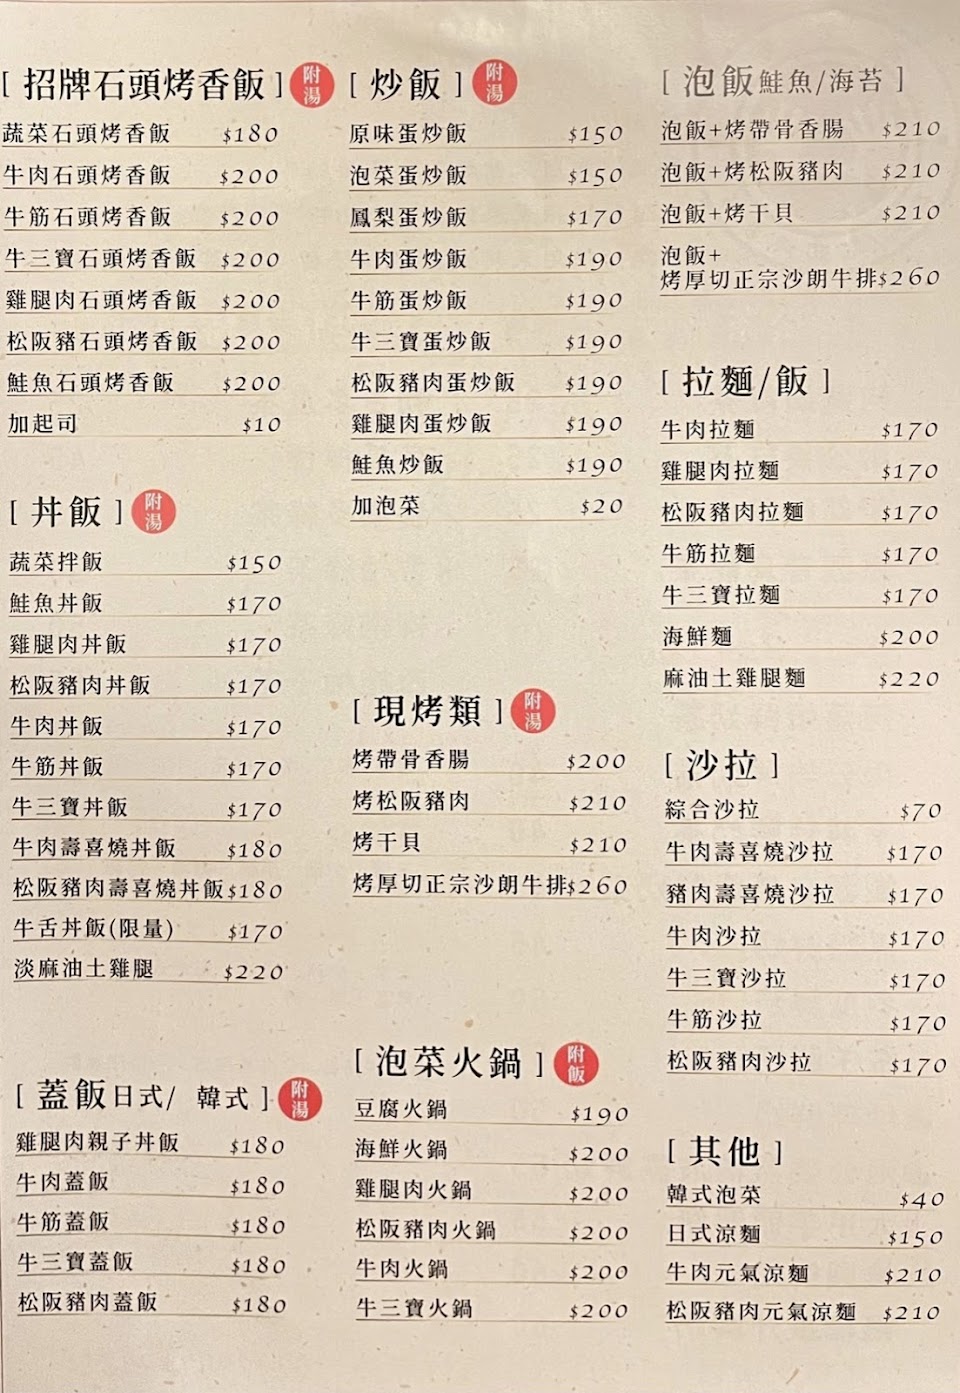 [ 招牌石頭烤香飯 ] 附湯
蔬菜石頭烤香飯 $180
牛肉石頭烤香飯 $200
牛筋石頭烤香飯 $200
牛三寶石頭烤香飯 $200
雞腿肉石頭烤香飯 $200
松阪豬石頭烤香飯 $200
鮭魚石頭烤香飯 $200
加起司 $10
[ 丼飯 ] 附湯
蔬菜拌飯 $150
鮭魚丼飯 $170
雞腿肉丼飯 $170
松阪豬肉丼飯 $170
牛肉丼飯 $170
牛筋丼飯 $170
牛三寶丼飯 $170
牛肉壽喜燒丼飯 $180
松阪豬肉壽喜燒丼飯 $180
牛舌丼飯(限量) $170
淡麻油土雞腿 $220
[ 蓋飯日式/ 韓式 ] 附湯
雞腿肉親子丼飯 $180
牛肉蓋飯 $180
牛筋蓋飯 $180
牛三寶蓋飯 $180
松阪豬肉蓋飯 $180
[ 炒飯 ] 附湯
原味蛋炒飯 $150
泡菜蛋炒飯 $150
鳳梨蛋炒飯 $170
牛肉蛋炒飯 $190
牛筋蛋炒飯 $190
牛三寶蛋炒飯 $190
松阪豬肉蛋炒飯 $190
雞腿肉蛋炒飯 $190
鮭魚炒飯 $190
加泡菜 $20
[ 現烤類 ] 附湯
烤帶骨香腸 $200
烤松阪豬肉 $210
烤干貝 $210
烤厚切正宗沙朗牛排 $260
[ 泡菜火鍋 ] 附飯
豆腐火鍋 $190
海鮮火鍋 $200
雞腿肉火鍋 $200
松阪豬肉火鍋 $200
牛肉火鍋 $200
牛三寶火鍋 $200
[ 泡飯鮭魚/海苔 ]
泡飯+烤帶骨香腸 $210
泡飯+烤松阪豬肉 $210
泡飯+烤干貝 $210
泡飯+
烤厚切正宗沙朗牛排 $260
[ 拉麵/飯 ]
牛肉拉麵 $170
雞腿肉拉麵 $170
松阪豬肉拉麵 $170
牛筋拉麵 $170
牛三寶拉麵 $170
海鮮麵 $200
麻油土雞腿麵 $220
[ 沙拉 ]
綜合沙拉 $70
牛肉壽喜燒沙拉 $170
豬肉壽喜燒沙拉 $170
牛肉沙拉 $170
牛三寶沙拉 $170
牛筋沙拉 $170
松阪豬肉沙拉 $170
[ 其他 ]
韓式泡菜 $40
日式涼麵 $150
牛肉元氣涼麵 $210
松阪豬肉元氣涼麵 $210